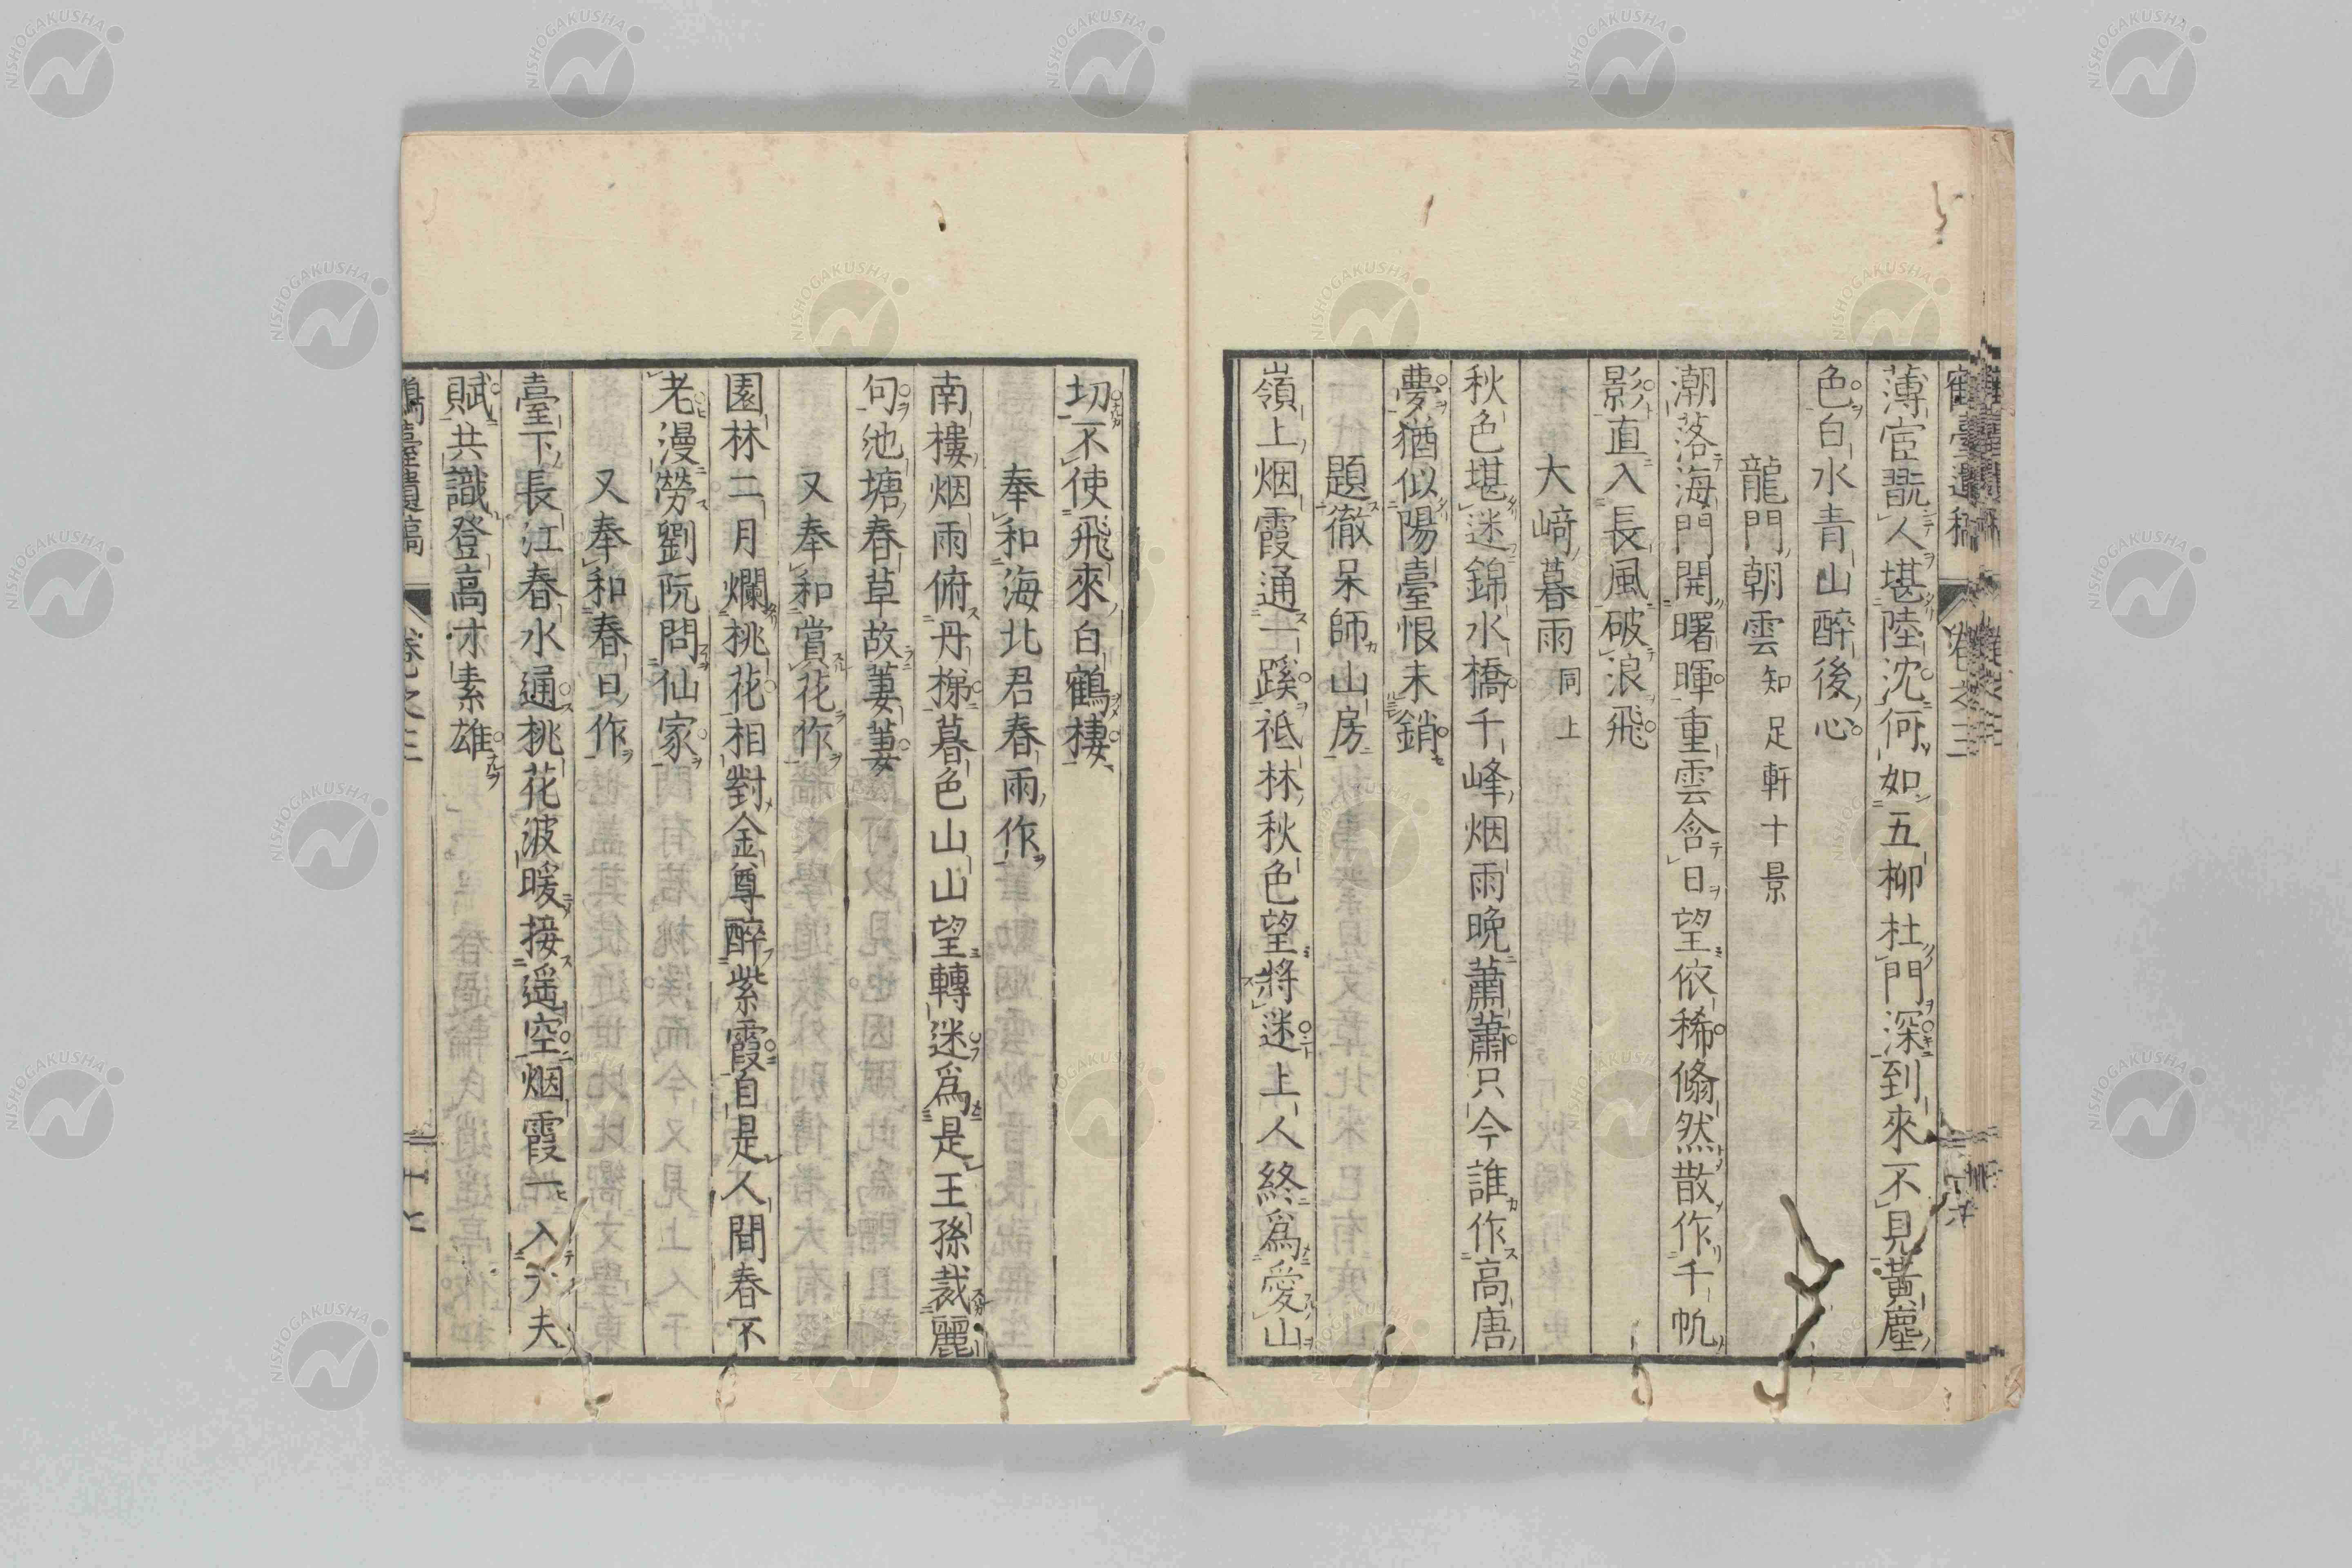 薄宦翫人堪陸沈何如五柳杜門深到來不見黃塵
色白水青山醉後心
龍門朝雲 知足軒十景
潮落海門開曙暉重雲含日望依稀翛然散作千帆
影直入長風破浪飛
大﨑暮雨 同上
秋色堪迷錦水橋千峰烟雨晚蕭蕭只今誰作高唐
夢猶似陽臺恨未銷
題徹呆師山房
嶺上烟霞通一蹊祗林秋色望將迷上人終爲愛山
切不使飛來白鶴棲
奉和海北君春雨作
南樓烟雨俯丹梯暮色山山望轉迷爲是王孫裁麗
句池塘春草故萋萋
又奉和賞花作
園林二月爛桃花相對金尊醉紫霞自是人間春不
老漫勞劉阮問仙家
又奉和春日作
臺下長江春水通桃花波暖接遥空烟霞一入大夫
賦共識登高才素雄
鶴臺遺稿 卷之三